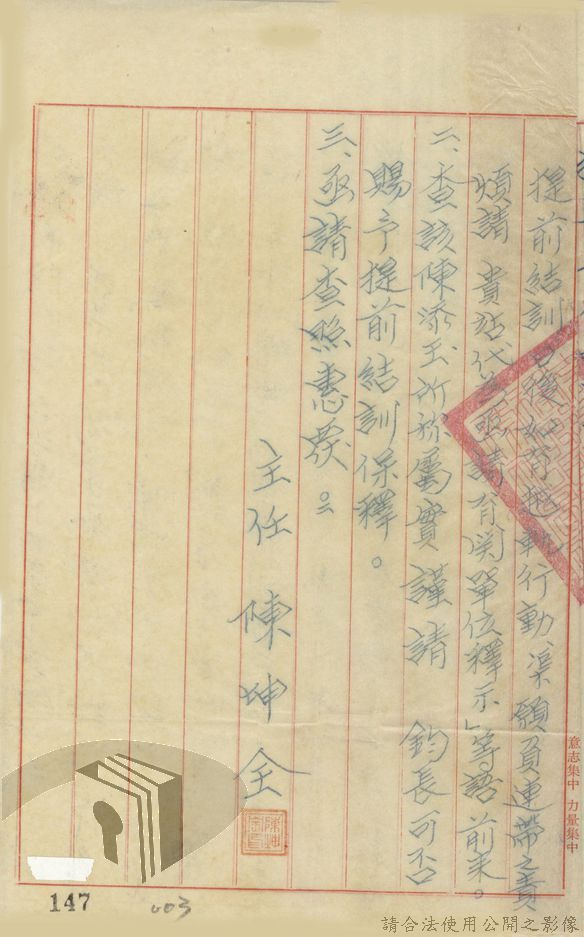 提前結訓日後如有越軌行動、渠願負連帶之責
煩請 貴站代為函請有関單位釋示」等語前来。
二、查該陳添玉所称屬實謹請 鈞長可否
賜予提前結訓保釋。
三、函請查照惠裁。
主任 陳坤全
意志集中 力量集中
147
003
請合法使用公開之影像